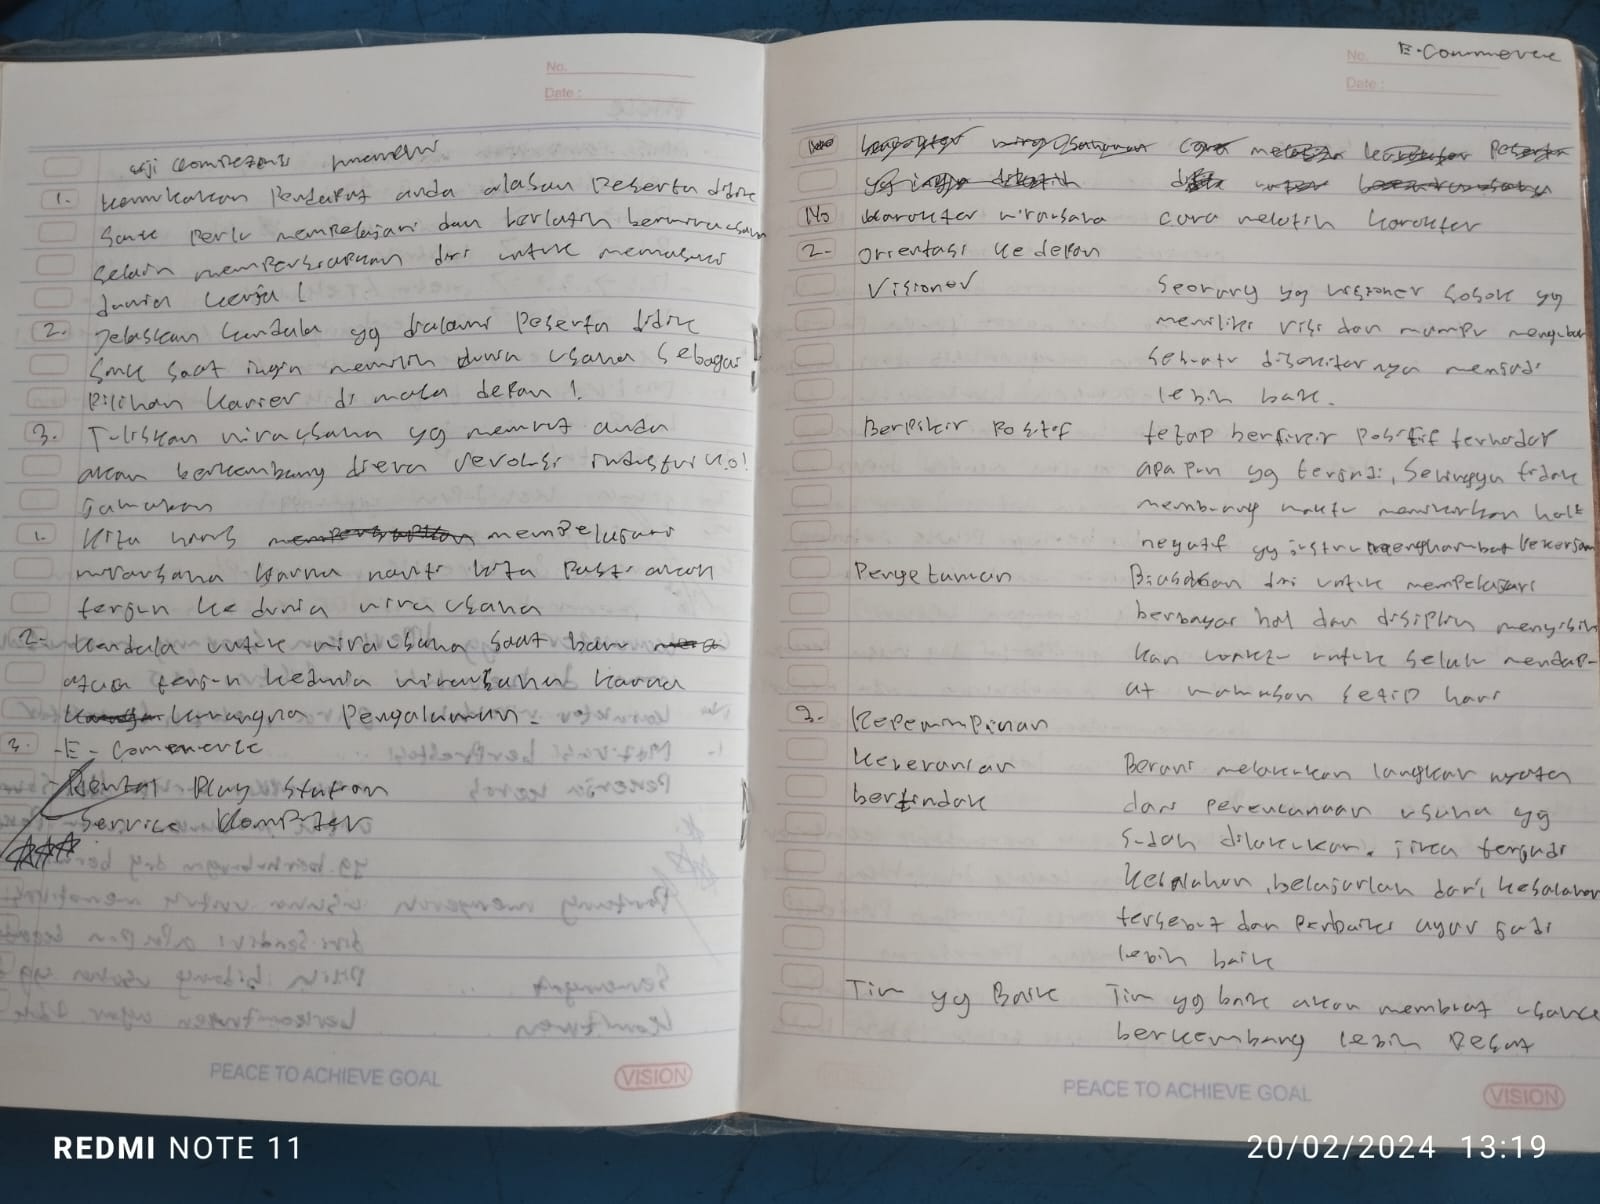 No.
Date :
uji kompetensi
1. kemukakan Pendapat anda alasan Peserta didik
Smk Perlu mempelajari dan berlatih berwirausaha
selain mempersiapkan diri untuk memasuki
dunia kerja !
2. Jelaskan kendala yg dialami Peserta didik
Smk saat ingin memilih dunia usaha sebagai
Pilihan karier di masa depan !
3. Tuliskan wirausaha yg menurut anda
akan berkembang diera revolusi industri 4.0!
Jawaban
1. Kita harus mempelajari
wirausaha karna nanti kita Pasti akan
terjun ke dunia wirausaha
2. kendala untuk wirausaha saat baru
atau terjun kedunia wirausaha karna
kurangnya Pengalaman.
3. -E-Comenerce
-Rental Play Station
-Service Komputer
PEACE TO ACHIEVE GOAL
VISION
E-Commerce
No.
Date :
No karakter wirausaha cara melatih karakter
2. orientasi ke depan
Visioner Seorang yg visioner sosok yg
memiliki visi dan mampu mengubah
sesuatu disekitarnya menjadi
lebih baik.
Berpikir Positif tetap berfikir Positif terhadap
apapun yg terjadi, sehingga tidak
membuang waktu memikirkan hal2
negatif yg justru menghambat Pekerjaan
Pengetahuan Biasakan diri untuk mempelajari
berbagai hal dan disiplin menyisih
kan waktu untuk selalu mendap-
at wawasan setiap hari
3. Kepemimpinan
keberanian Berani melakukan langkah nyata
bertindak dari perencanaan usaha yg
sudah dilakukan. Jika terjadi
kesalahan, belajarlah dari kesalahan
tersebut dan Perbaiki agar jadi
lebih baik
Tim yg Baik Tim yg baik akan membuat usaha
berkembang lebih Pesat
PEACE TO ACHIEVE GOAL
VISION
REDMI NOTE 11
20/02/2024 13:19